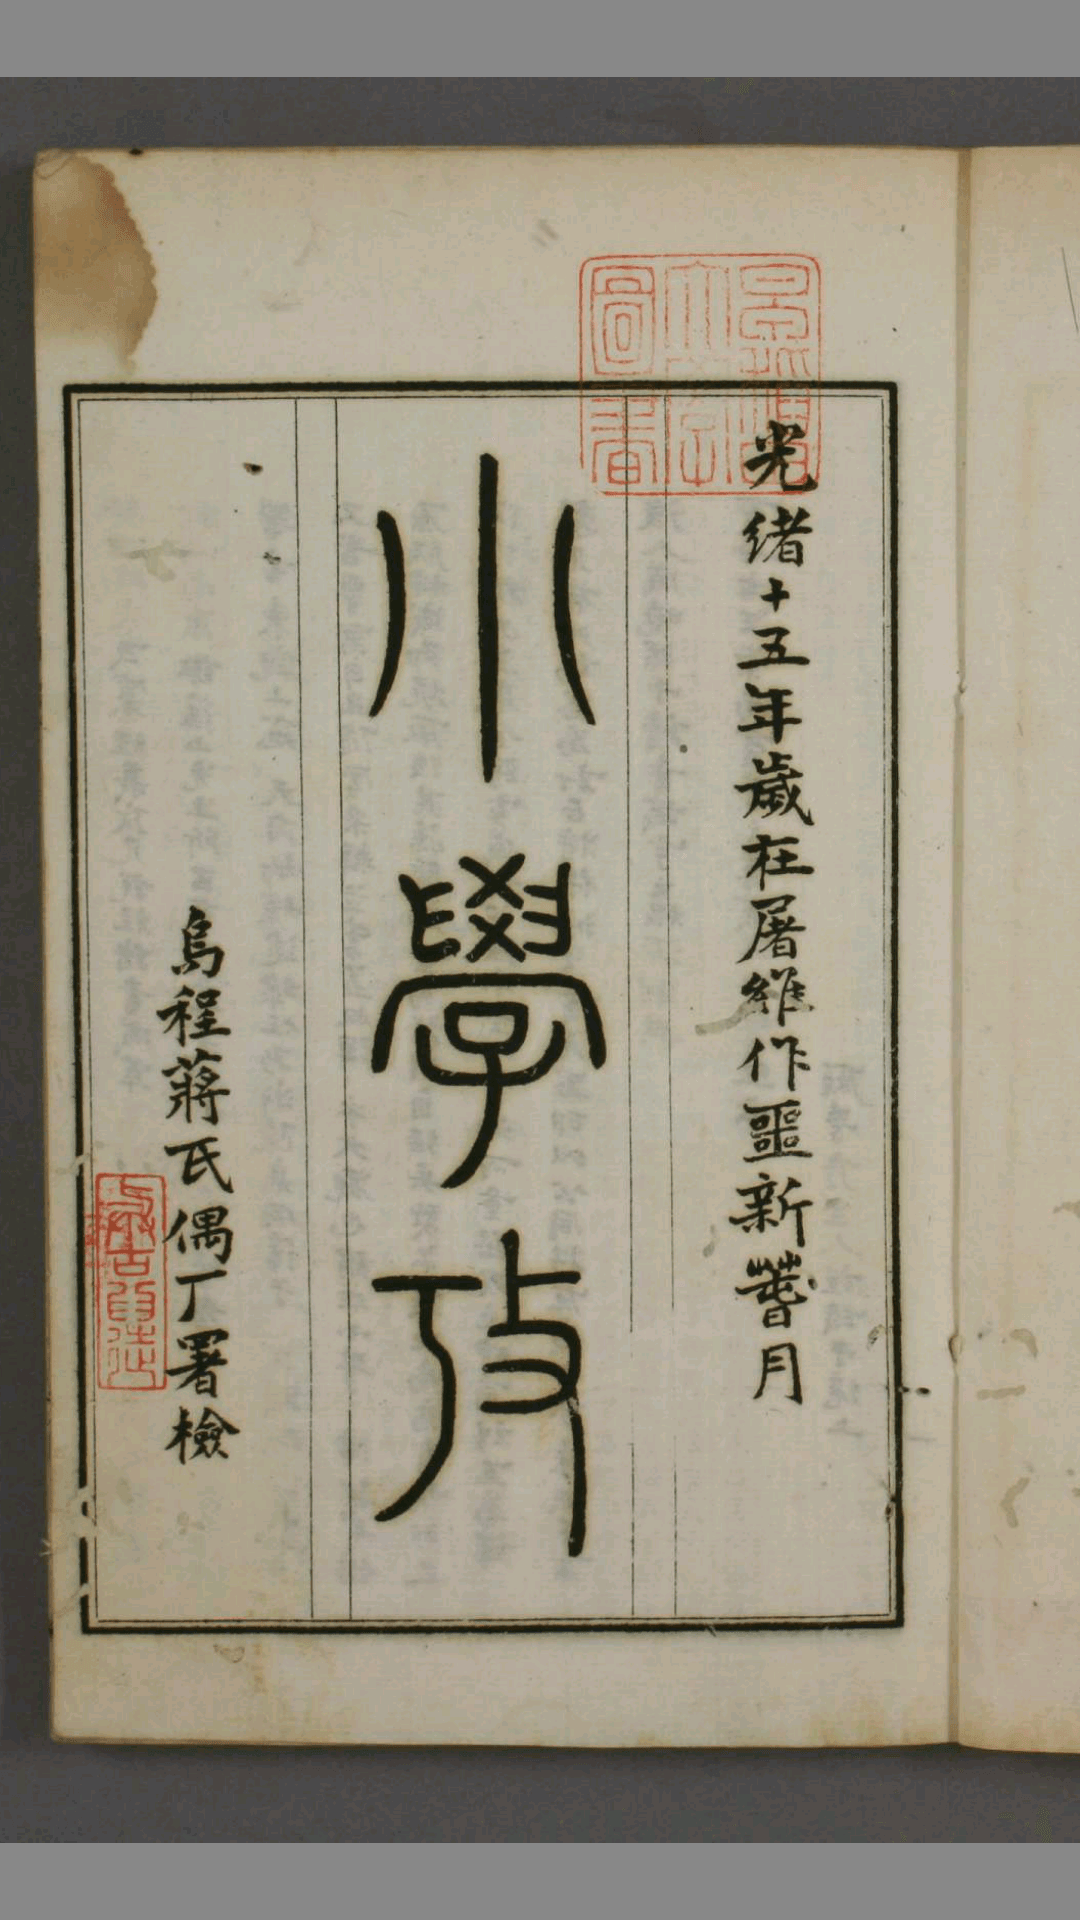 光緒十五年歲在屠維作噩新月
小學攷
烏程蔣氏偶厂署檢